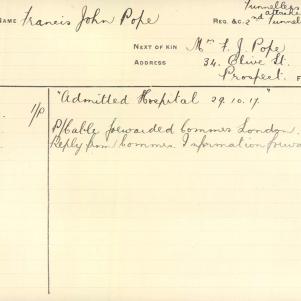 Tunnellers
NAME Francis John Pope REG. &C. 2nd
Tunnel
NEXT OF KIN Mrs F. J. Pope
ADDRESS 34. Clive St.
Prospect. F
"Admitted Hospital 29.10.17."
1/P P/Cable forwarded Commrs London.
Reply from Commrs. Information forwa